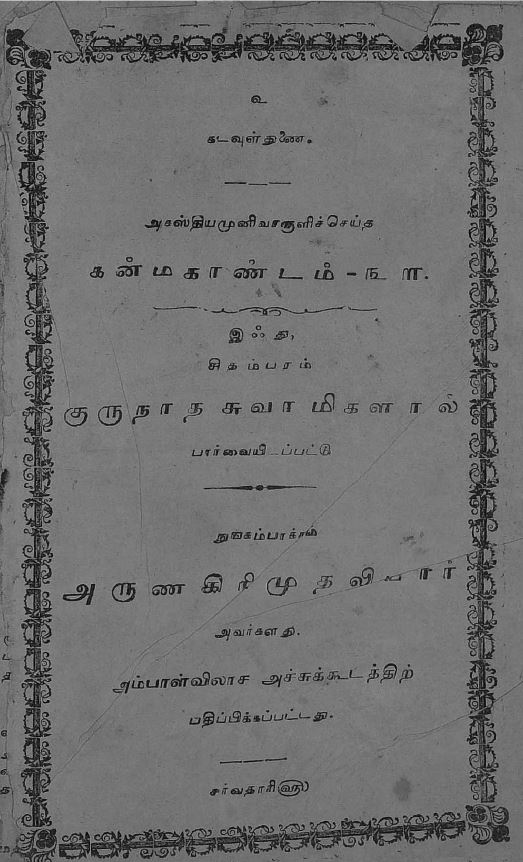 உ
கடவுள் துணை.
அகஸ்தியமுனிவரருளிச்செய்த
கன்மகாண்டம் - ௩௱.
இஃது,
சிதம்பரம்
குருநாதசுவாமிகளால்
பார்வையிடப்பட்டு
நுங்கம்பாக்கம்
அருணகிரிமுதலியார்
அவர்களது.
அம்பாள்விலாச அச்சுக்கூடத்திற்
பதிப்பிக்கப்பட்டது.
சர்வதாரி௵